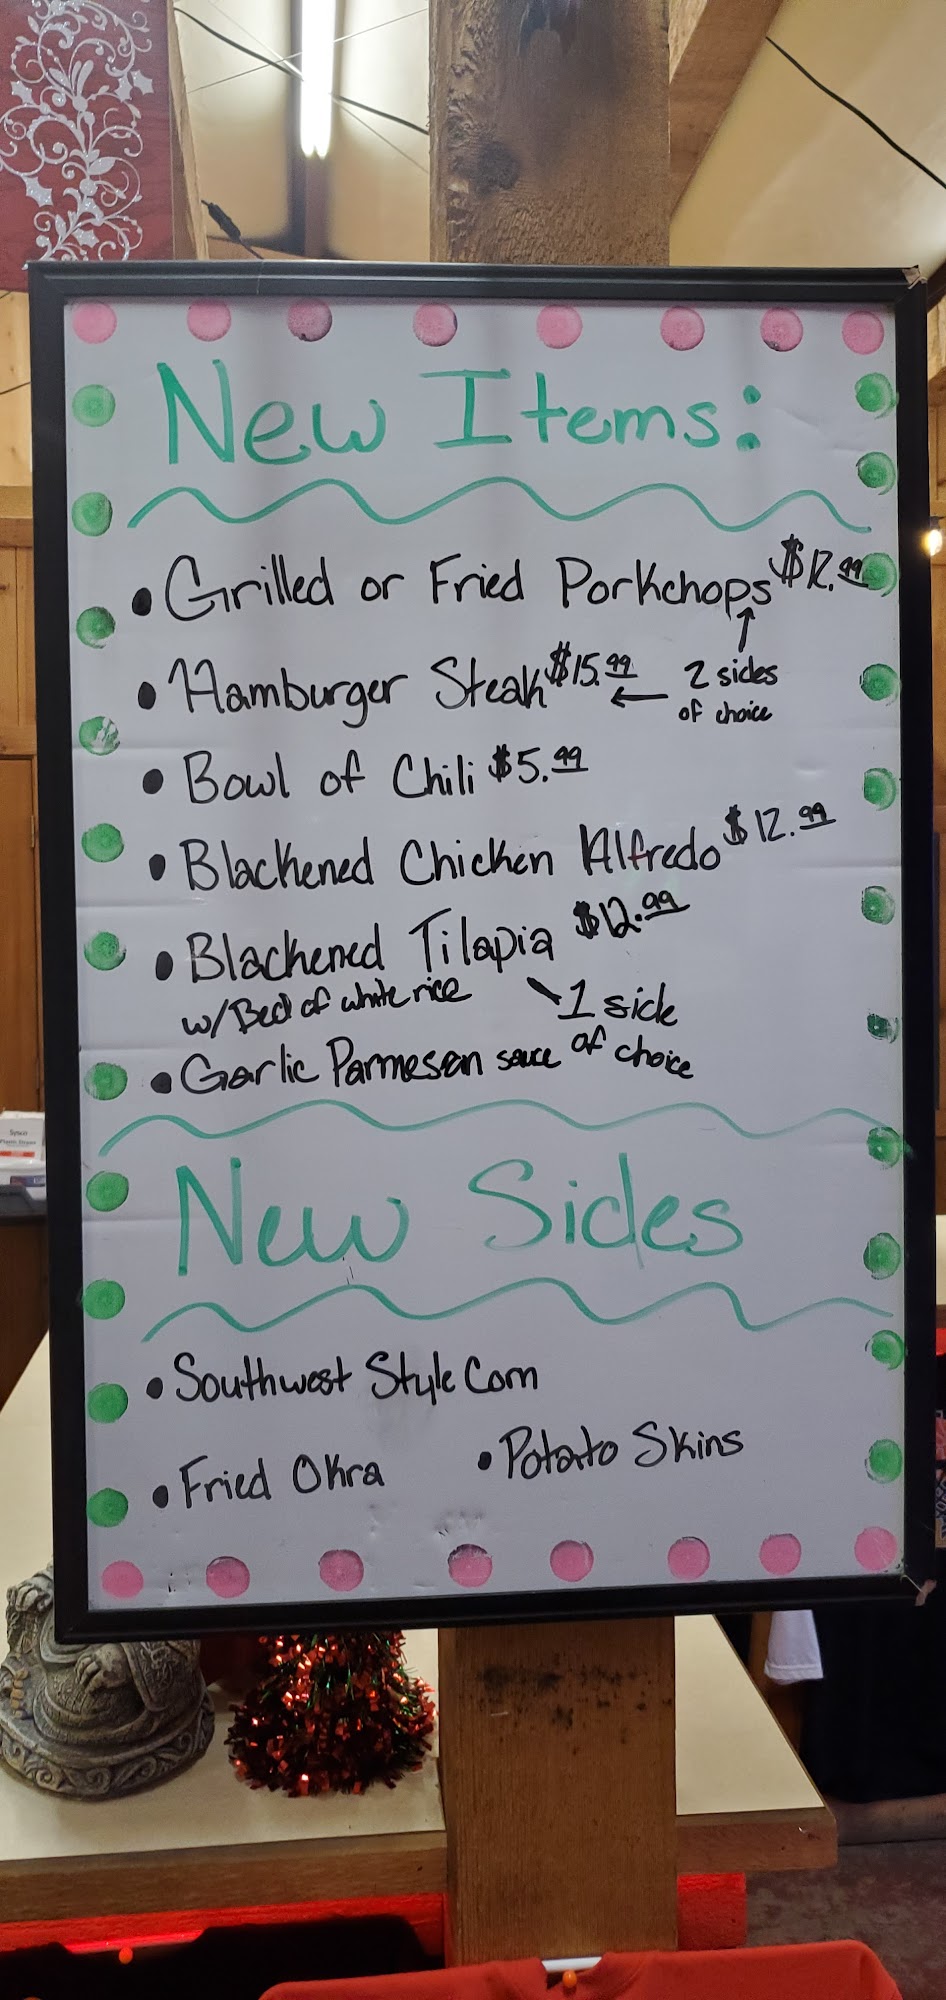 New Items:
• Grilled or Fried Porkchops $12.99
• Hamburger Steak $15.99 ← 2 sides
of choice
• Bowl of Chili $5.99
• Blackened Chicken Alfredo $12.99
• Blackened Tilapia $12.99
w/Bed of white rice 1 side
of choice
• Garlic Parmesan sauce
New Sides
• Southwest Style Corn
• Fried Okra • Potato Skins
Sysco